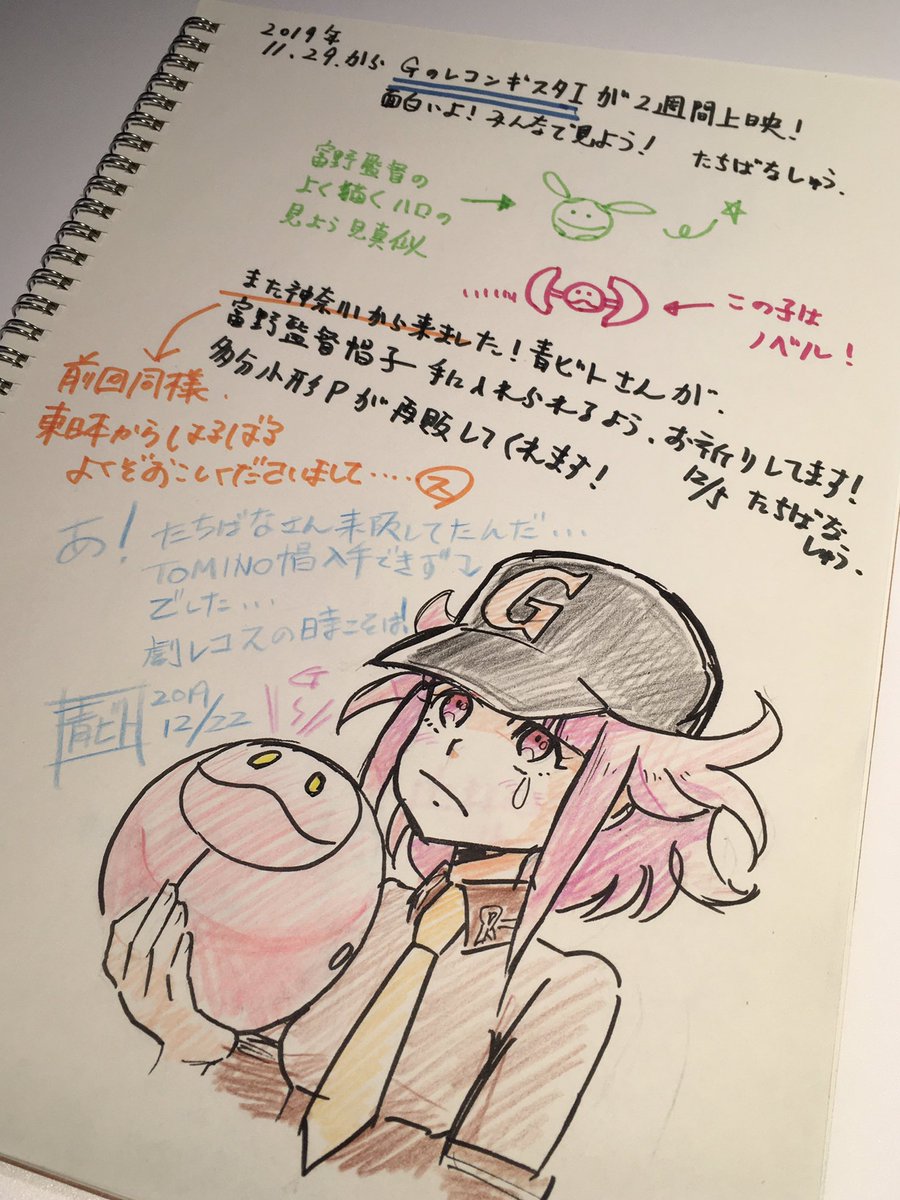 2019年
11.29.から GのレコンギスタI が2週間上映!
面白いよ!みんなで見よう! たちばなしゅう.
富野監督の
よく描くハロの
見よう見真似
この子は
ノベル!
また神奈川から来ました!青ビトさんが、
富野監督帽子 手に入れられるよう、お祈りしてます!
多分小形Pが再販してくれます!
12/5 たちばな
しゅう.
前回同様、
東日本からはるばる
よくぞおこしくださいまして‥‥ス
あ!たちばなさん来阪してたんだ…
TOMINO帽入手できず
でした…
劇レコスの時こそは!
青ビト 2019
12/22
G
G
R